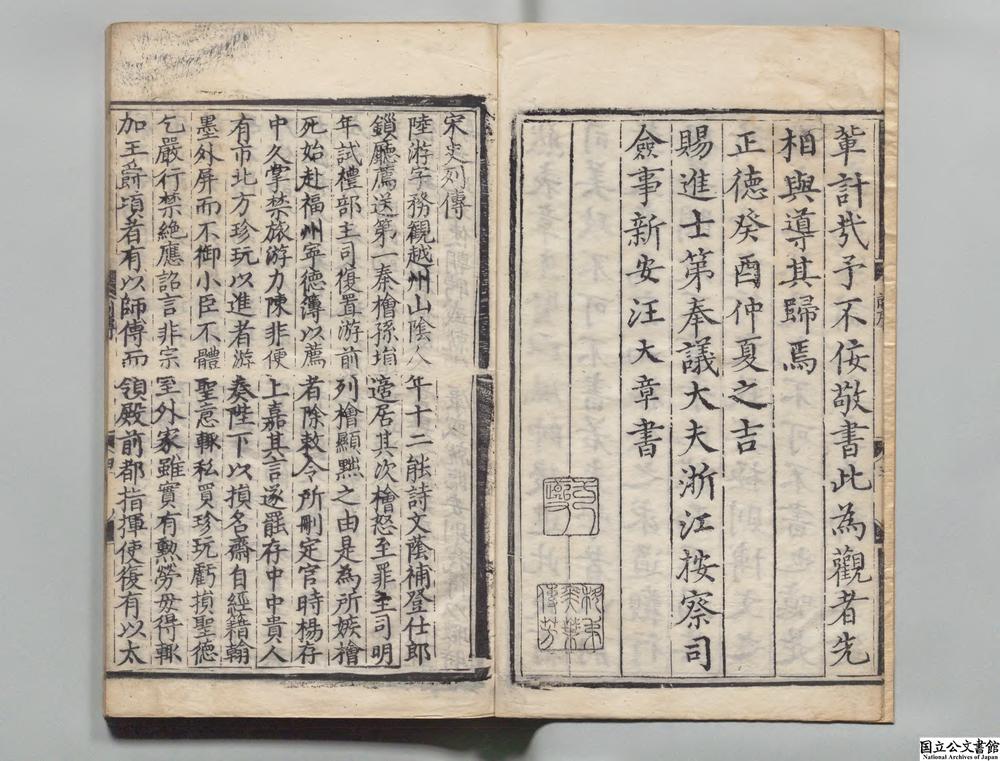 軰計㢤予不佞敬書此為觀者先
相與導其歸焉
正德癸酉仲夏之吉
賜進士第奉議大夫浙江按察司
僉事新安汪大章書
宋史列傳
陸游字務觀越州山陰人年十二能詩文蔭補登仕郎
鎖廳薦送第一秦檜孫塤適居其次檜怒至罪主司明
年試禮部主司復置游前列檜顯黜之由是為所嫉檜
死始赴福州寧德簿以薦者除敕令所刪定官時楊存
中久掌禁旅游力陳非便上嘉其言遂罷存中中貴人
有市北方珍玩以進者游奏陛下以損名齋自經籍翰
墨外屏而不御小臣不體聖意輙私買珍玩虧損聖德
乞嚴行禁絕應詔言非宗室外家雖實有勲勞毋得輙
加王爵頃者有以師傅而領殿前都指揮使復有以太
国立公文書館
National Archives of Japan